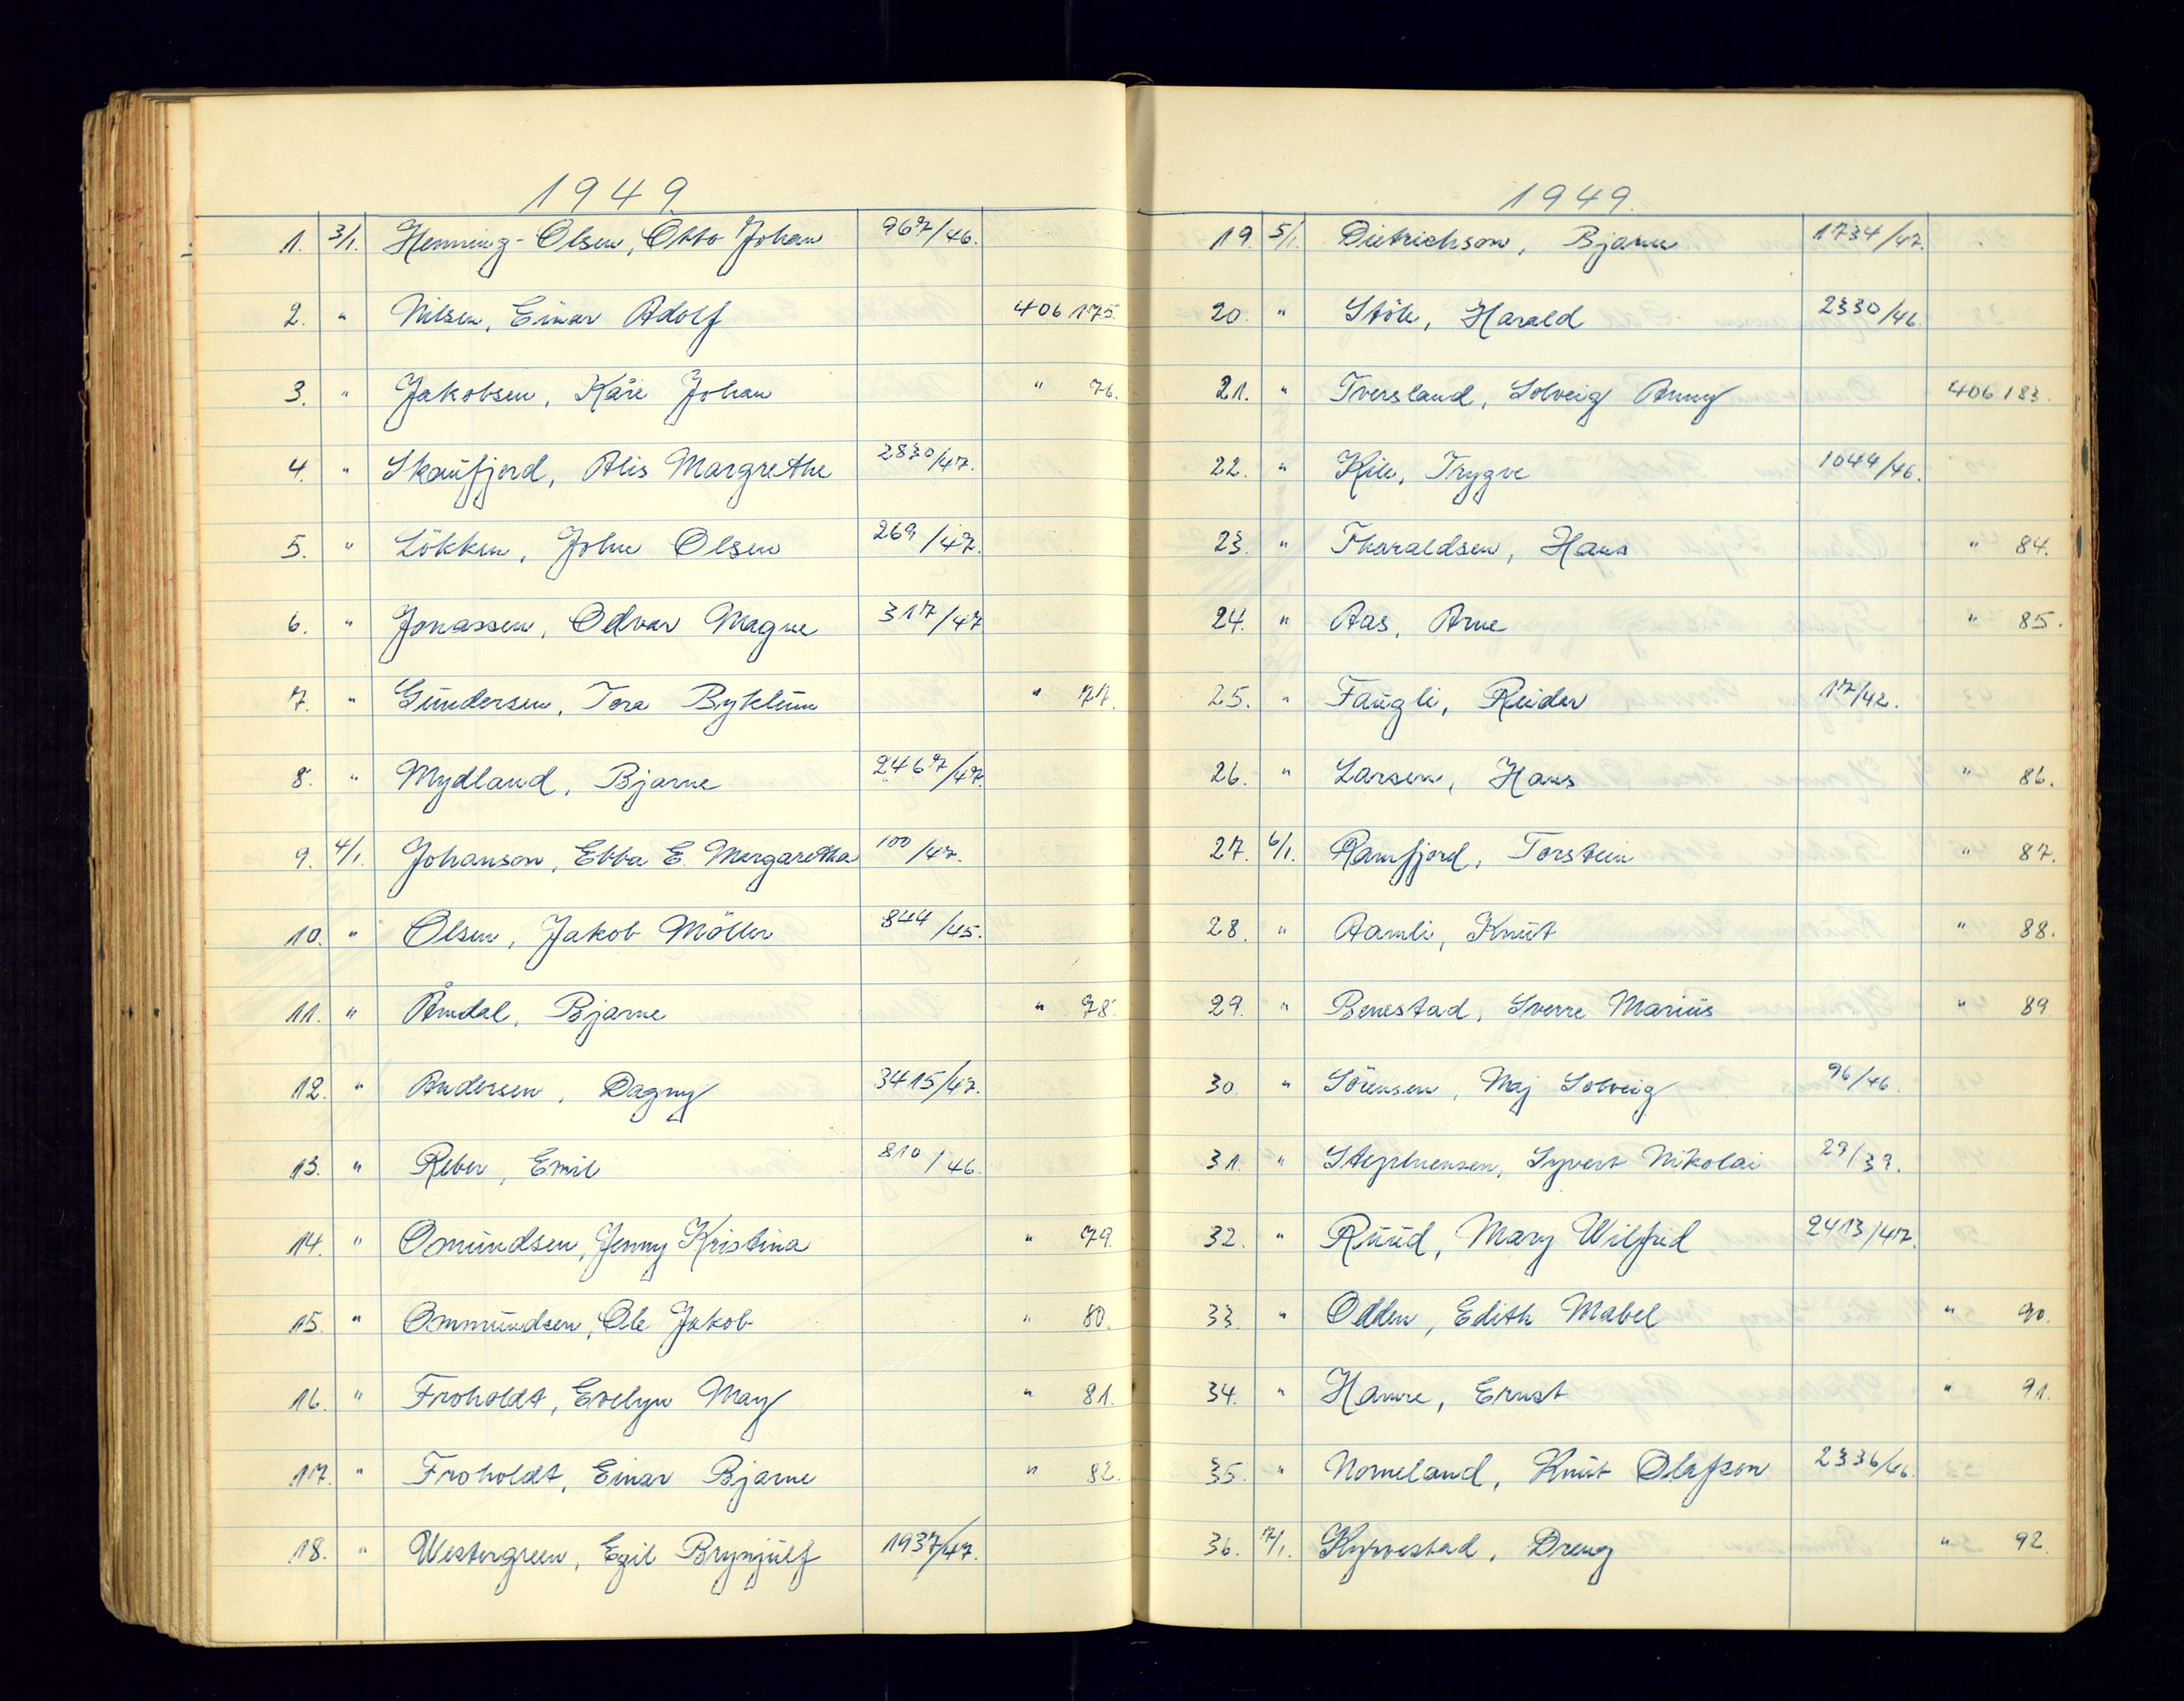 1949
1. 3/1. Henning-Olsen, Otto Johan 967/46.
2. " Nilsen, Einar Adolf 406 175.
3. " Jakobsen, Kåre Johan " 76.
4. " Skaufjord, Alis Margrethe 2830/47.
5. " Lökken, John Olsen 269/47.
6. " Jonassen, Odvar Magne 317/47
7. " Gundersen, Tora Byklum " 77.
8. " Mydland, Bjarne 2467/47.
9. 4/1. Johanson, Ebba E. Margaretha 100/47.
10. " Olsen, Jakob Möller 844/45.
11. " Åmdal, Bjarne " 78.
12. " Andersen, Dagny 3415/47.
13. " Reber, Emil 810/46.
14. " Osmundsen, Jenny Kristina " 79.
15. " Ommundsen, Ole Jakob " 80.
16. " Froholdt, Evelyn May " 81.
17. " Froholdt, Einar Bjarne " 82.
18. " Westergreen, Egil Brynjulf 1937/47.
1949.
19. 5/1. Dietrichson, Bjarne 1734/47.
20. " Stöle, Harald 2330/46.
21. " Tversland, Solveig Anny 406 183.
22. " Kile, Trygve 1044/46.
23. " Tharaldsen, Hans " 84.
24. " Aas, Arne " 85.
25. " Faugli, Reidar 17/42.
26. " Larsen, Hans " 86.
27. 6/1. Ramfjord, Torstein " 87.
28. " Aamli, Knut " 88.
29. " Benestad, Sverre Marius " 89
30. " Sörensen, Maj Solveig 96/46.
31. " Stephensen, Syvert Nikolai 29/39.
32. " Ruud, Mary Wilfrid 2413/47.
33. " Odden, Edith Mabel " 90.
34. " Hamre, Ernst " 91.
35. " Nomeland, Knut Olafson 2336/46.
36. 7/1. Kyrvestad, Dreng " 92.